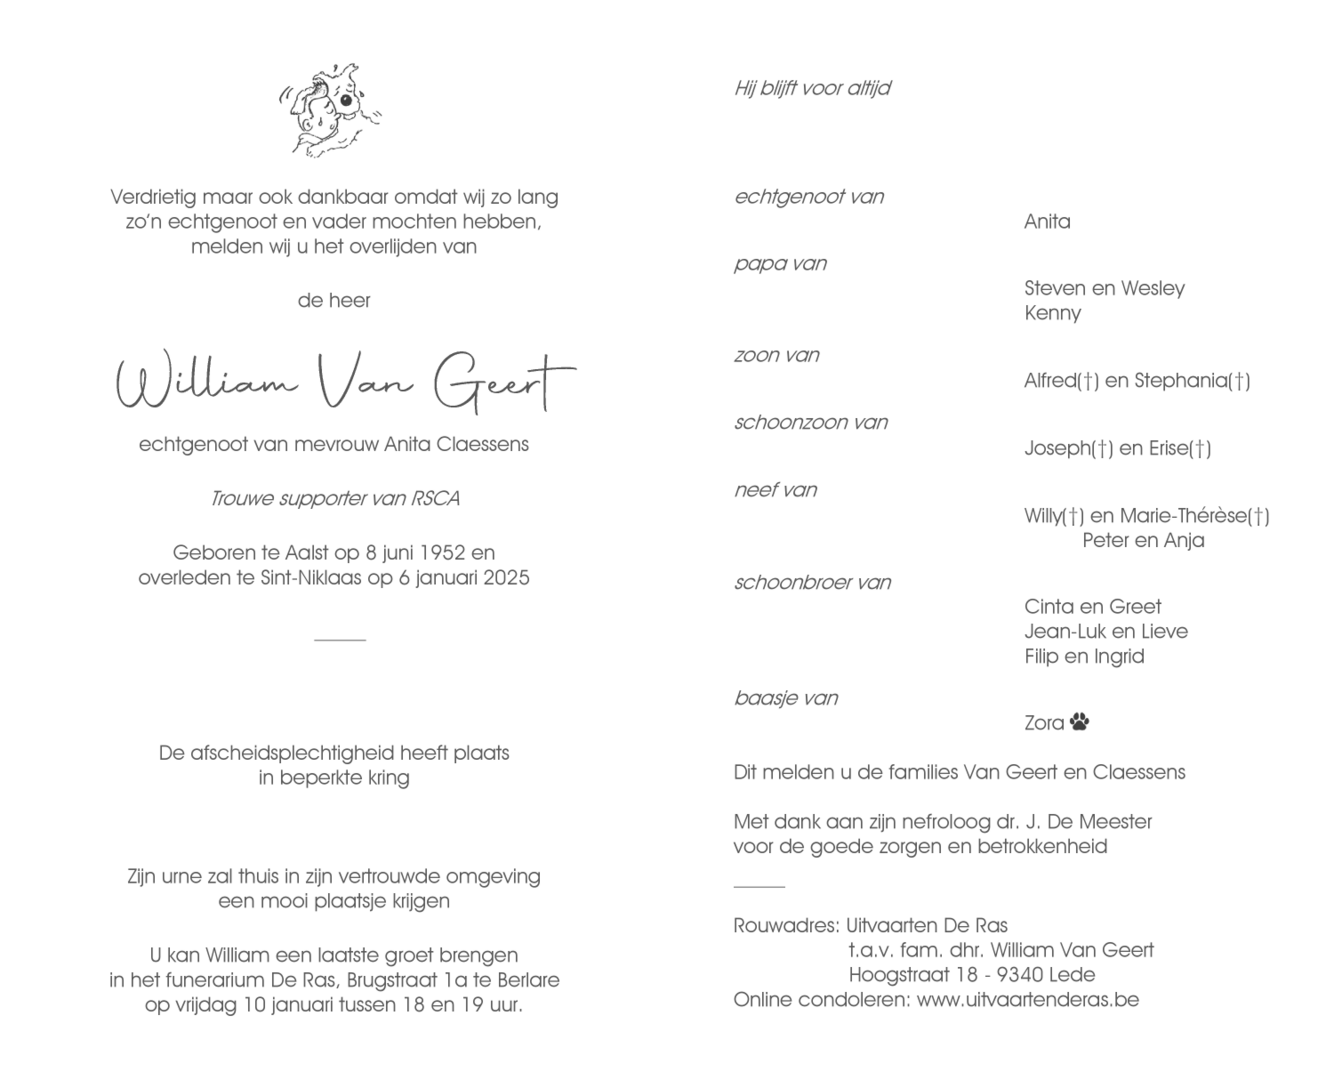 Verdrietig maar ook dankbaar omdat wij zo lang
zo’n echtgenoot en vader mochten hebben,
melden wij u het overlijden van
de heer
William Van Geert
echtgenoot van mevrouw Anita Claessens
Trouwe supporter van RSCA
Geboren te Aalst op 8 juni 1952 en
overleden te Sint-Niklaas op 6 januari 2025
De afscheidsplechtigheid heeft plaats
in beperkte kring
Zijn urne zal thuis in zijn vertrouwde omgeving
een mooi plaatsje krijgen
U kan William een laatste groet brengen
in het funerarium De Ras, Brugstraat 1a te Berlare
op vrijdag 10 januari tussen 18 en 19 uur.
Hij blijft voor altijd
echtgenoot van
Anita
papa van
Steven en Wesley
Kenny
zoon van
Alfred(†) en Stephania(†)
schoonzoon van
Joseph(†) en Erise(†)
neef van
Willy(†) en Marie-Thérèse(†)
Peter en Anja
schoonbroer van
Cinta en Greet
Jean-Luk en Lieve
Filip en Ingrid
baasje van
Zora
Dit melden u de families Van Geert en Claessens
Met dank aan zijn nefroloog dr. J. De Meester
voor de goede zorgen en betrokkenheid
Rouwadres: Uitvaarten De Ras
t.a.v. fam. dhr. William Van Geert
Hoogstraat 18 - 9340 Lede
Online condoleren: www.uitvaartenderas.be